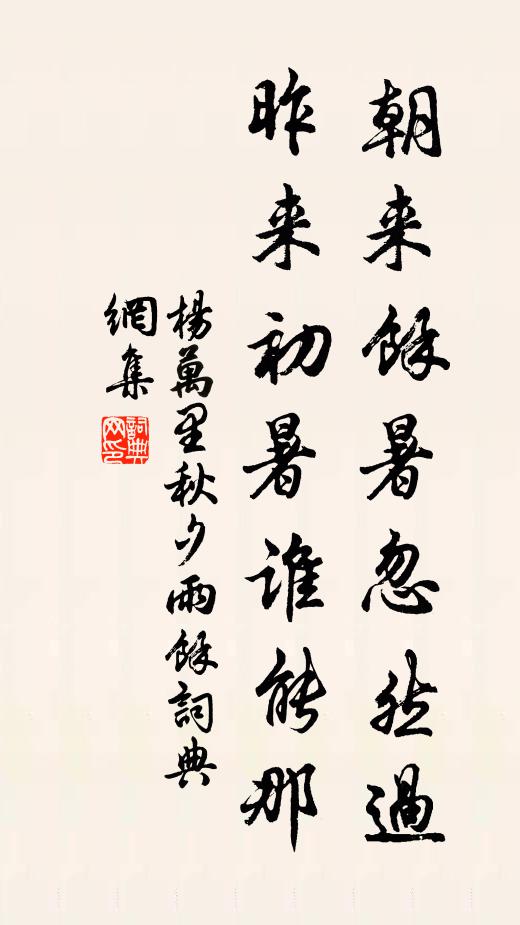 朝来餘暑忽然過
昨来初暑誰能那
楊萬里秋夕雨餘詞典
網集
詞典
网印